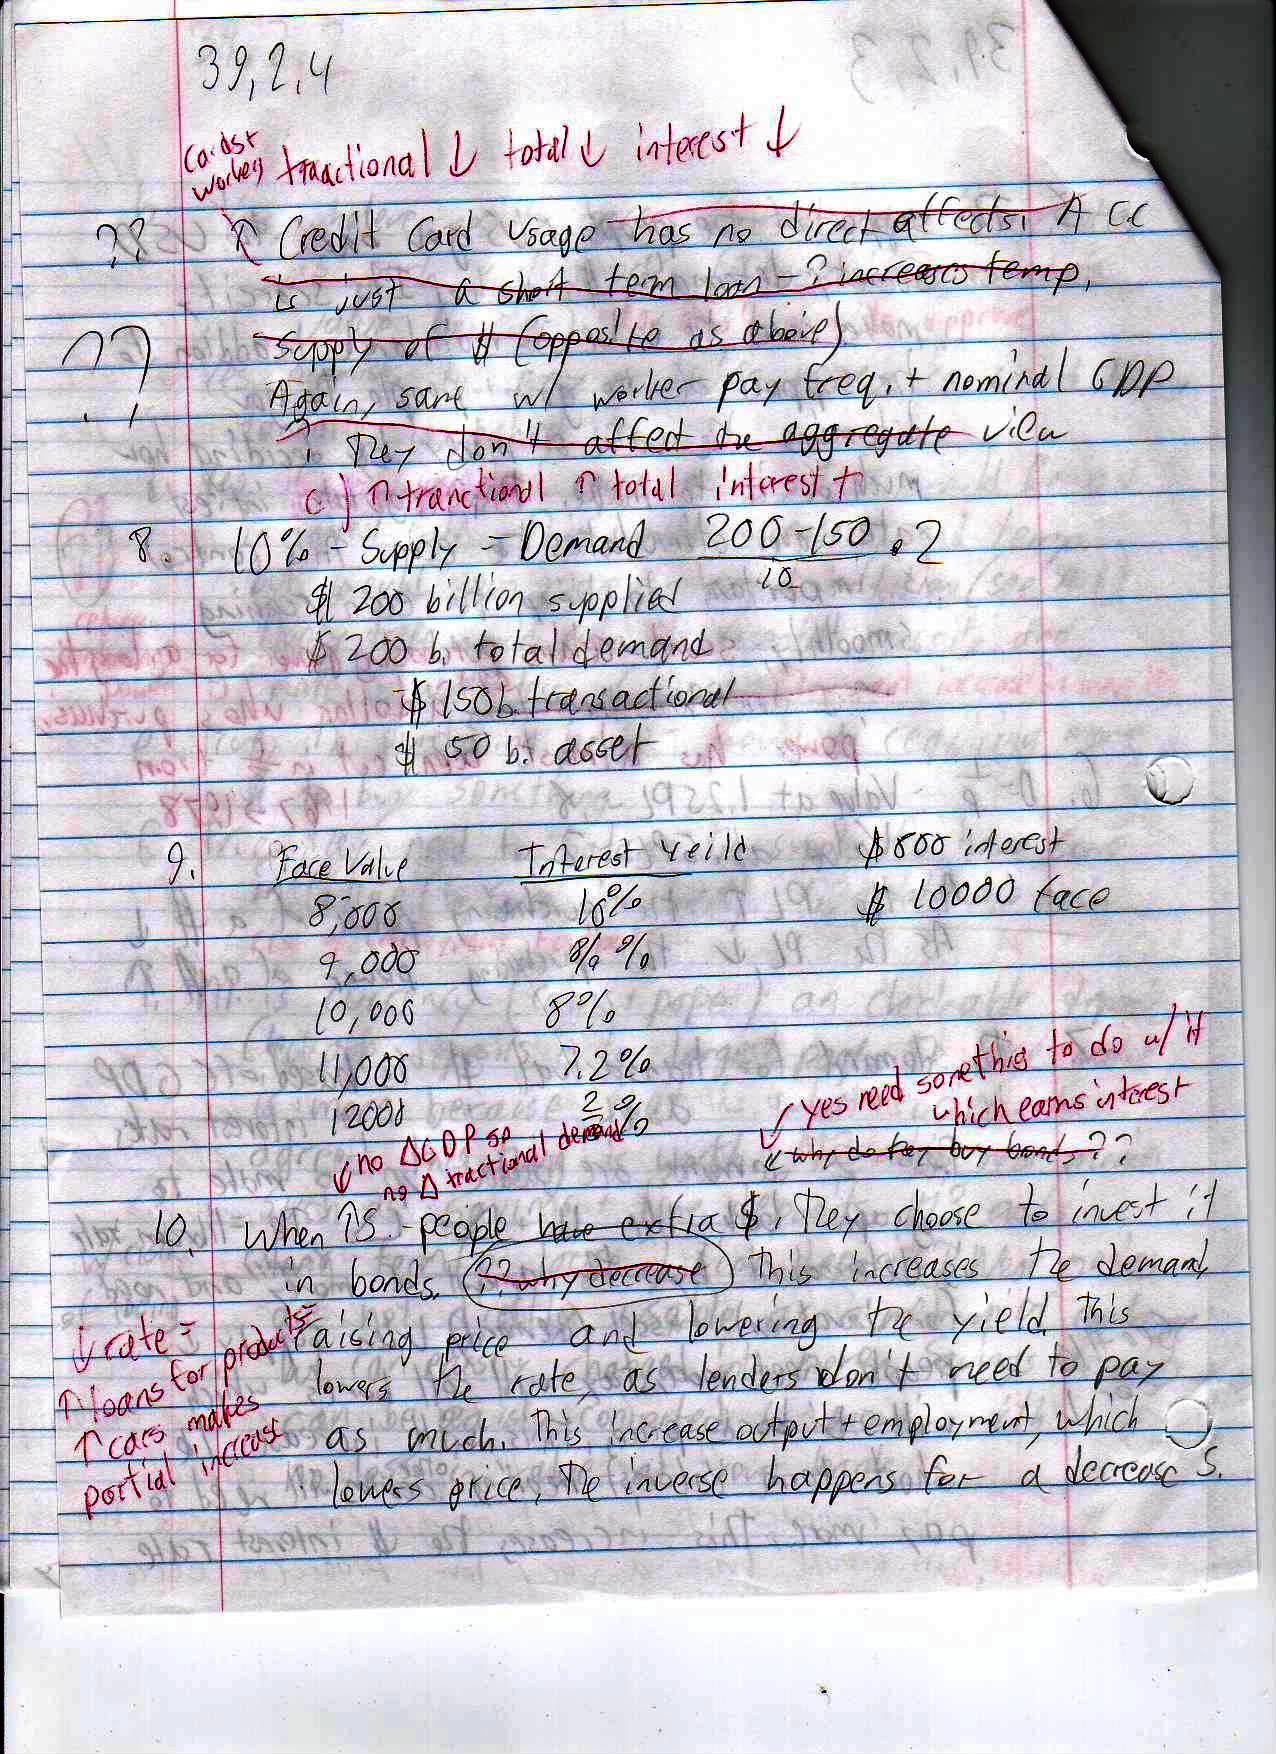 39,2,4
Cards+
workers tractional ↓ total ↓ interest ↓
?? ↑ Credit Card usage has no direct affects. A CC
is just a short term loan - ? increases temp,
?? supply of $ (opposite as above)
Again, same w/ worker pay freq. + nominal GDP
, They don't affect the aggregate view
c) ↑ tranctional ↑ total interest ↑
8. 10% - Supply = Demand 200-150 .2
10
$ 200 billion supplied
$ 200 b. total demand
$ 150b. transactional
$ 50 b. asset
9. Face Value Interest Yeild $800 interest
8,000 10% $ 10000 face
9,000 %
10,000 8%
11,000 7.2%
12000 %
↙ yes need somethig to do w/ it
which earns interest
↙ no ΔGDP so
no Δ tractional demand
↙ why do they buy bonds ??
10. When ↑S - people have extra $. They choose to invest it
in bonds. (?? why decrease) This increases the demand,
raising price and lowering the yield. This
lowers the rate, as lenders don't need to pay
as much. This increase output + employment, which
lowers price. The inverse happens for a decrease S.
↓ rate =
↑ loans for products
↑ cars makes
partial increase